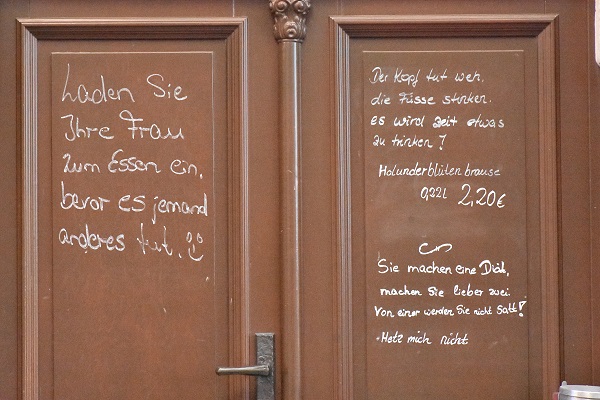 Laden Sie
Ihre Frau
zum Essen ein,
bevor es jemand
anderes tut.
Der Kopf tut weh,
die Füsse stinken.
es wird zeit etwas
zu trinken!
Holunderblüten brause
0,22l 2,20€
Sie machen eine Diät,
machen Sie lieber zwei.
Von einer werden Sie nicht Satt!
nicht